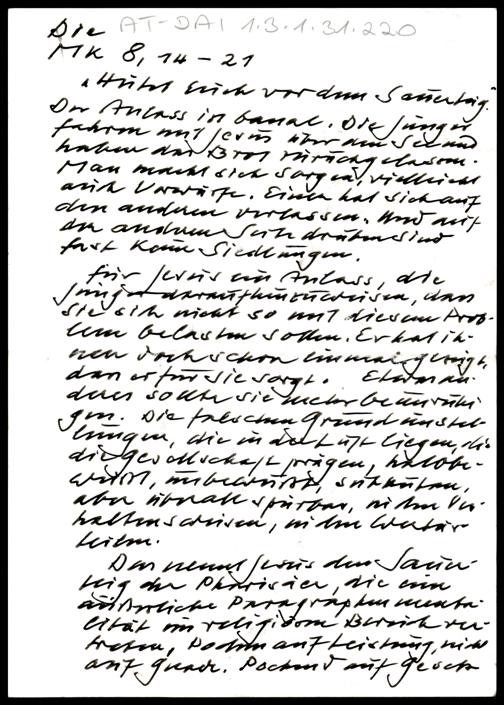 Die AT-DAI 1.3.1.31.220
MK 8, 14-21
"Hütet Euch vor dem Sauerteig."
Der Anlass ist banal. Die Jünger
fahren mit Jesus über den See und
haben das Brot zurückgelassen.
Man macht sich Sorgen, vielleicht
auch Vorwürfe. Einer hat sich auf
den anderen verlassen. Und auf
der anderen Seite drüben sind
fast keine Siedlungen.
Für Jesus ein Anlass, die
Jünger darauf hinzuweisen, dass
sie sich nicht so mit diesem Prob-
lem belasten sollen. Er hat ih-
nen doch schon einmal gezeigt,
dass er für sie sorgt. Etwas an-
deres sollte sie mehr beunruhi-
gen. Die falschen Grundeinstel-
lungen, die in der Luft liegen, die
die Gesellschaft prägen, halbbe-
wußt, unbewußt,
aber überall spürbar, in den Ver-
haltensweisen, in den Wertur-
teilen.
Das nennt Jesus den Sauer-
teig der Pharisäer, die eine
äußerliche Paragraphenmenta-
lität im religiösen Bereich ver-
treten, Pochen auf Leistung, nicht
auf Gnade. Pochend auf Gesetz